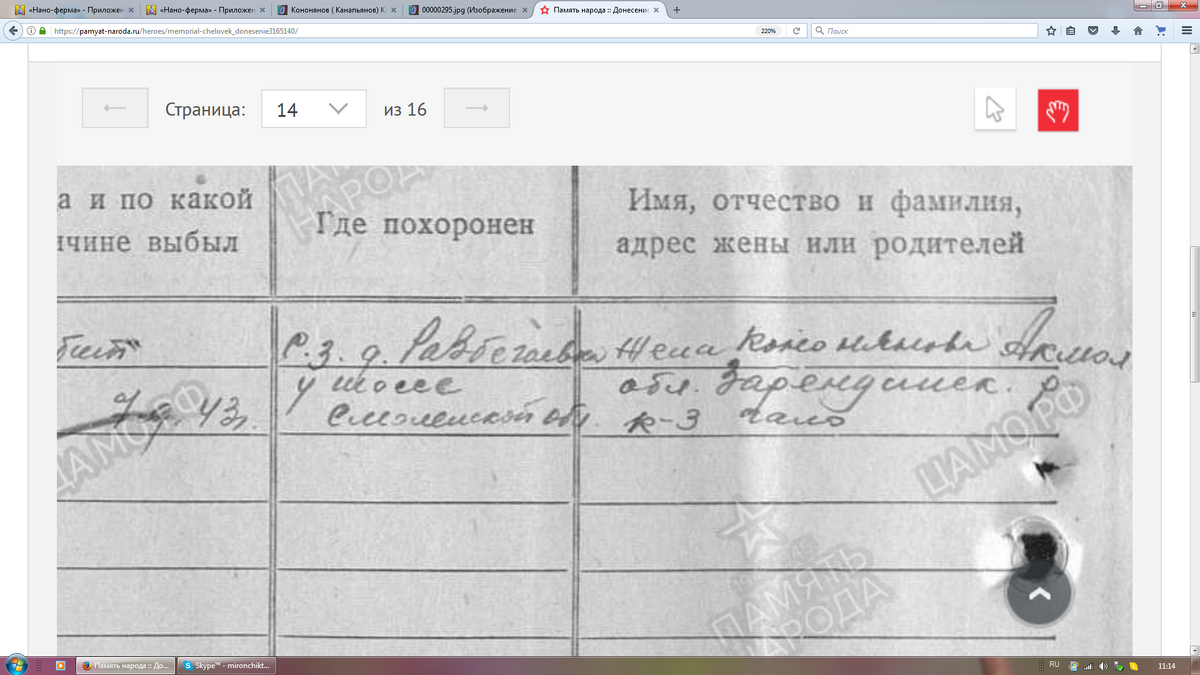 «Нано-ферма» - Приложен
«Нано-ферма» - Приложен
Кононянов ( Канапьянов) К
00000295.jpg (Изображение
Память народа :: Донесени
https://pamyat-naroda.ru/heroes/memorial-chelovek_donesenie3165140/
220%
Поиск
Страница: 14 из 16
а и по какой
ичине выбыл
Где похоронен
Имя, отчество и фамилия,
адрес жены или родителей
бит
7 43г.
С.З. д. Разбегаевка
у шоссе
Смоленской обл.
Жена Кононянова Акмол
обл. Зарендинск. р
к-з
ПАМЯТЬ
НАРОДА
ЦАМО.РФ
ЦАМО.РФ
ПАМЯТЬ
НАРОДА
Память народа :: До...
Skype™ - mironchikt...
RU
11:14